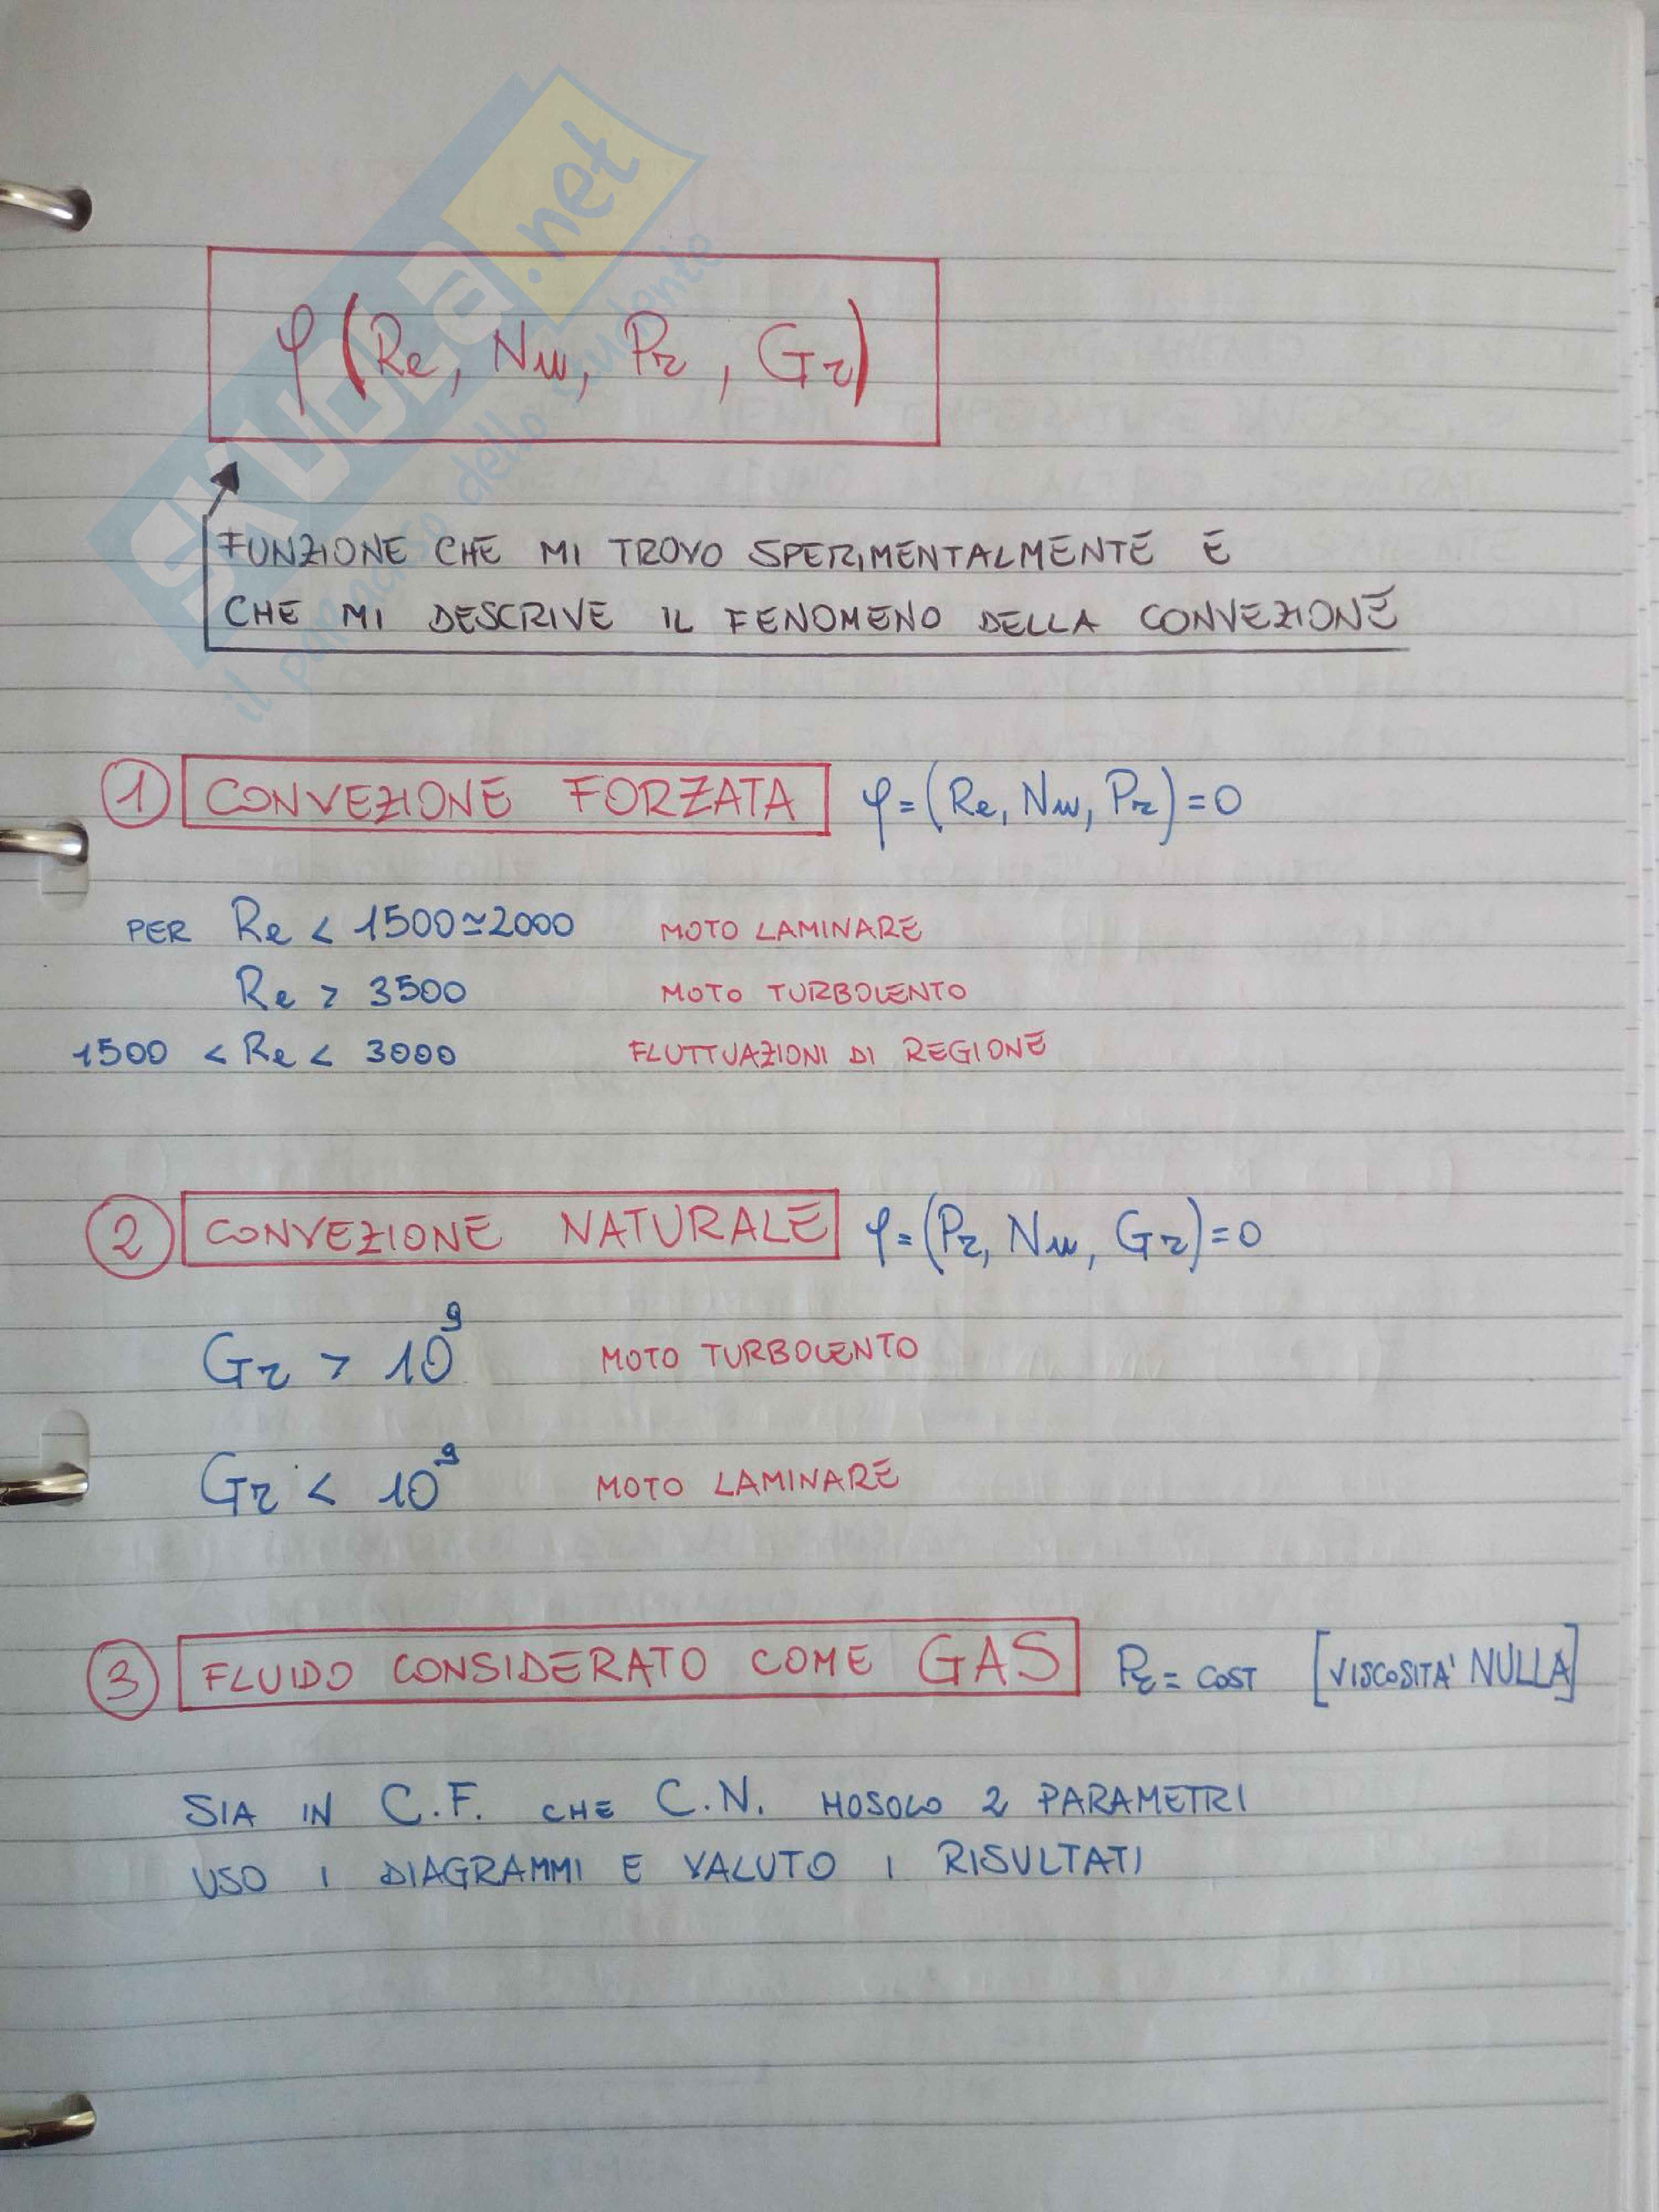 SKUOLA.net
il paradiso dello studente
φ (Re, Nu, Pr, Gr)
FUNZIONE CHE MI TROVO SPERIMENTALMENTE E
CHE MI DESCRIVE IL FENOMENO DELLA CONVEZIONE
1 CONVEZIONE FORZATA φ=(Re, Nu, Pr)=0
PER Re < 1500≃2000 MOTO LAMINARE
Re > 3500 MOTO TURBOLENTO
1500 < Re < 3000 FLUTTUAZIONI DI REGIONE
2 CONVEZIONE NATURALE φ=(Pr, Nu, Gr)=0
Gr > 10⁹ MOTO TURBOLENTO
Gr < 10⁹ MOTO LAMINARE
3 FLUIDO CONSIDERATO COME GAS Pr = COST [VISCOSITA' NULLA]
SIA IN C.F. CHE C.N. HO SOLO 2 PARAMETRI
USO I DIAGRAMMI E VALUTO I RISULTATI